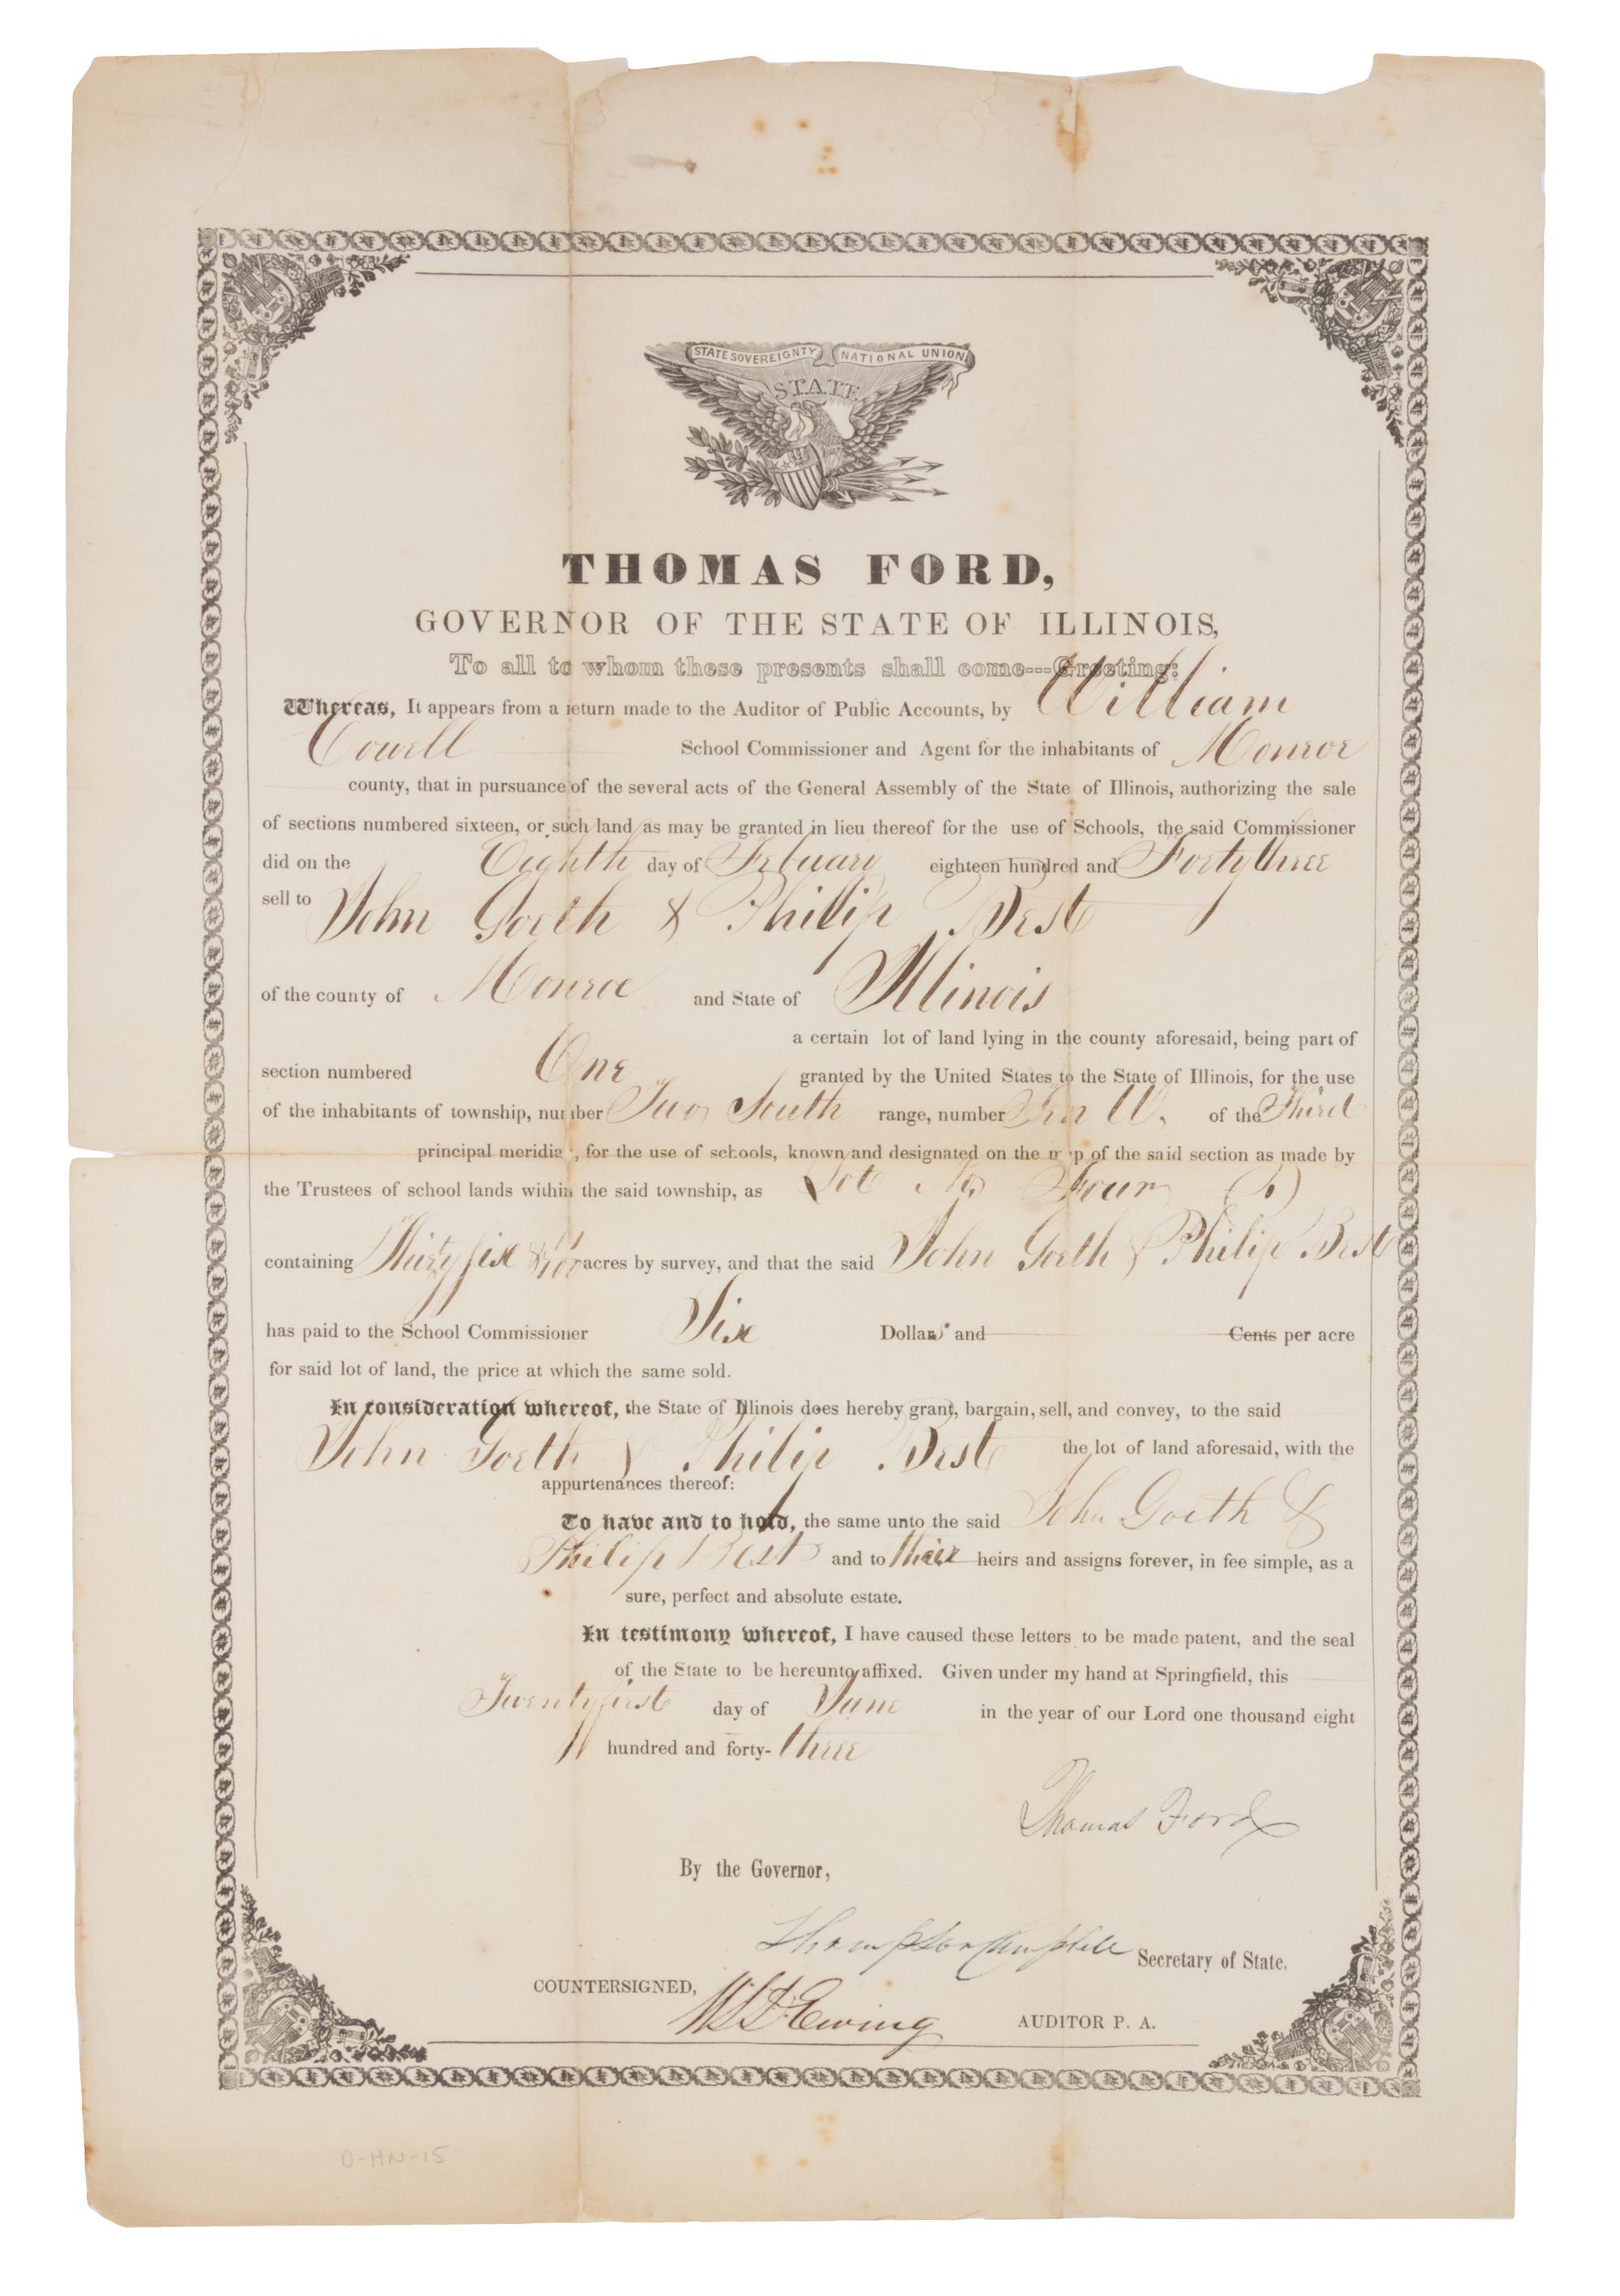 STATE SOVEREIGNTY NATIONAL UNION
STATE
THOMAS FORD,
GOVERNOR OF THE STATE OF ILLINOIS,
To all to whom these presents shall come---Greeting:
Whereas, It appears from a return made to the Auditor of Public Accounts, by William
Cowell School Commissioner and Agent for the inhabitants of Monroe
county, that in pursuance of the several acts of the General Assembly of the State of Illinois, authorizing the sale
of sections numbered sixteen, or such land as may be granted in lieu thereof for the use of Schools, the said Commissioner
did on the Eighth day of February eighteen hundred and Forty three
sell to John Goeth & Philip Best
of the county of Monroe and State of Illinois
a certain lot of land lying in the county aforesaid, being part of
section numbered One granted by the United States to the State of Illinois, for the use
of the inhabitants of township, number Two South range, number Ten W. of the Third
principal meridian, for the use of schools, known and designated on the map of the said section as made by
the Trustees of school lands within the said township, as Lot No Four
containing Thirty six acres by survey, and that the said John Goeth & Philip Best
has paid to the School Commissioner Six Dollars and Cents per acre
for said lot of land, the price at which the same sold.
In consideration whereof, the State of Illinois does hereby grant, bargain, sell, and convey, to the said
John Goeth & Philip Best the lot of land aforesaid, with the
appurtenances thereof:
To have and to hold, the same unto the said John Goeth &
Philip Best and to their heirs and assigns forever, in fee simple, as a
sure, perfect and absolute estate.
In testimony whereof, I have caused these letters to be made patent, and the seal
of the State to be hereunto affixed. Given under my hand at Springfield, this
Twenty first day of June in the year of our Lord one thousand eight
hundred and forty-three
Thomas Ford
By the Governor,
Thompson Campbell Secretary of State.
COUNTERSIGNED,
W L D Ewing AUDITOR P. A.
D-HN-15